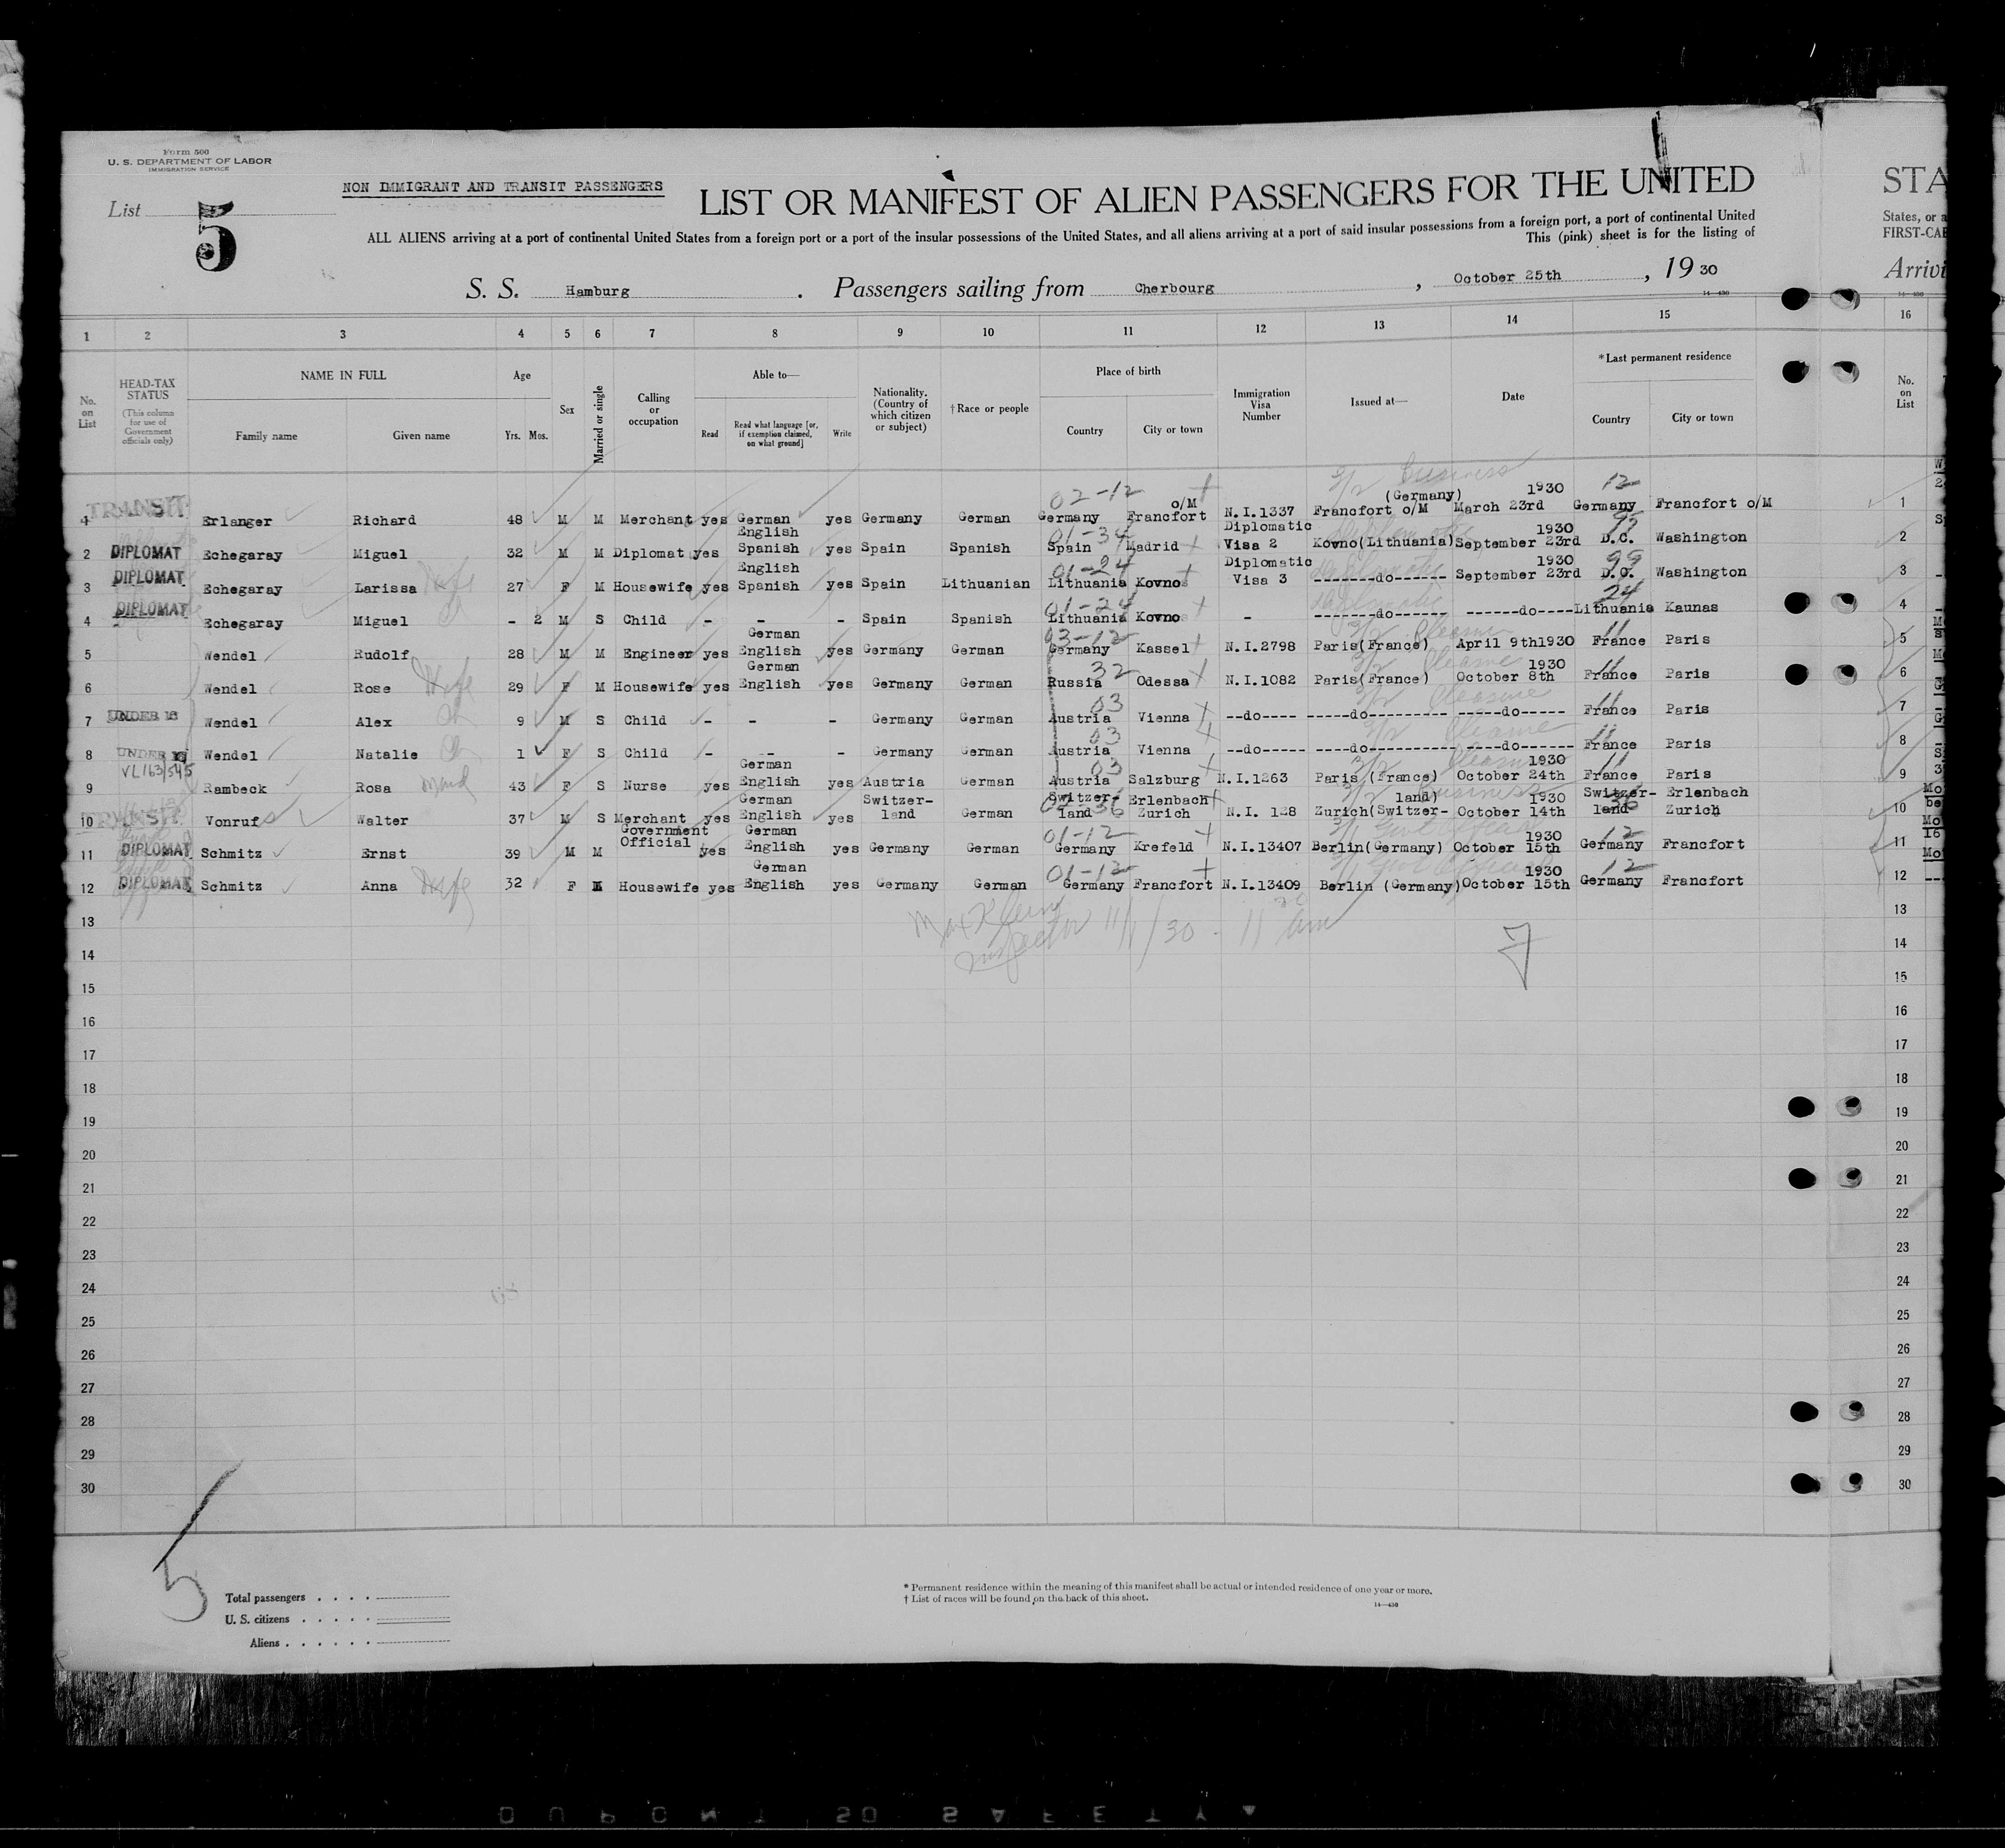 Form 500
U. S. DEPARTMENT OF LABOR
IMMIGRATION SERVICE
NON IMMIGRANT AND TRANSIT PASSENGERS
List 5
LIST OR MANIFEST OF ALIEN PASSENGERS FOR THE UNITED
STA
ALL ALIENS arriving at a port of continental United States from a foreign port or a port of the insular possessions of the United States, and all aliens arriving at a port of said insular possessions from a foreign port, a port of continental United
States, or a
This (pink) sheet is for the listing of
FIRST-CAB
S. S. Hamburg . Passengers sailing from Cherbourg , October 25th , 19 30
Arrivi
1 2 3 4 5 6 7 8 9 10 11 12 13 14 15 16
No. on List
HEAD-TAX STATUS
(This column for use of Government officials only)
NAME IN FULL
Family name Given name
Age
Yrs. Mos.
Sex
Married or single
Calling or occupation
Able to—
Read Read what language [or, if exemption claimed, on what ground] Write
Nationality. (Country of which citizen or subject)
†Race or people
Place of birth
Country City or town
Immigration Visa Number
Issued at—
Date
*Last permanent residence
Country City or town
No. on List
TRANSIT 02-12 Business 12
1 Erlanger Richard 48 M M Merchant yes German yes Germany German Germany Francfort o/M N.I.1337 Francfort o/M (Germany) March 23rd 1930 Germany Francfort o/M 1
2 DIPLOMAT Echegaray Miguel 32 M M Diplomat yes English Spanish yes Spain Spanish 01-34 Spain Madrid Diplomatic Visa 2 Kovno(Lithuania) September 23rd 1930 D.C. Washington 2
3 DIPLOMAT Echegaray Larissa Wife 27 F M Housewife yes English Spanish yes Spain Lithuanian 01-24 Lithuania Kovno Diplomatic Visa 3 -------do------ September 23rd 1930 99 D.C. Washington 3
4 DIPLOMAT Echegaray Miguel Ch - 2 M S Child - - - Spain Spanish 01-24 Lithuania Kovno - -------do------ ------do---- 24 Lithuania Kaunas 4
5 Wendel Rudolf 28 M M Engineer yes German English yes Germany German 03-12 Germany Kassel N.I.2798 Paris(France) Pleasure April 9th1930 11 France Paris 5
6 Wendel Rose Wife 29 F M Housewife yes German English yes Germany German 32 Russia Odessa N.I.1082 Paris(France) Pleasure October 8th 1930 11 France Paris 6
7 UNDER 16 Wendel Alex Ch 9 M S Child - - - Germany German 03 Austria Vienna --do---- -----do--------- Pleasure -----do----- France Paris 7
8 UNDER 16 Wendel Natalie Ch 1 F S Child - -- - Germany German 03 Austria Vienna --do----- ----do---------- Pleasure ----do------ 11 France Paris 8
VL163/545
9 Rambeck Rosa Maid 43 F S Nurse yes German English yes Austria German 03 Austria Salzburg N.I.1263 Paris (France) Pleasure October 24th 1930 11 France Paris 9
10 TRANSIT Vonruf Walter 37 M S Merchant yes German English yes Switzer-land German 36 Switzer-land Erlenbach Zurich N.I. 128 Zurich(Switzer-land) Business October 14th 1930 Switzer-land 36 Erlenbach Zurich 10
11 DIPLOMAT Schmitz Ernst 39 M M Government Official yes German English yes Germany German 01-12 Germany Krefeld N.I.13407 Berlin(Germany) October 15th 1930 12 Germany Francfort 11
12 DIPLOMAT Schmitz Anna Wife 32 F M Housewife yes German English yes Germany German 01-12 Germany Francfort N.I.13409 Berlin (Germany) October 15th 1930 12 Germany Francfort 12
13 13
Max Klein
Inspector 11/1/30 - 11 am
14 7 14
15 15
16 16
17 17
18 18
19 19
20 20
21 21
22 22
23 23
24 24
25 25
26 26
27 27
28 28
29 29
30 30
5
Total passengers
U. S. citizens
Aliens
* Permanent residence within the meaning of this manifest shall be actual or intended residence of one year or more.
† List of races will be found on the back of this sheet.
14—430
DUPONT SO SAFETY